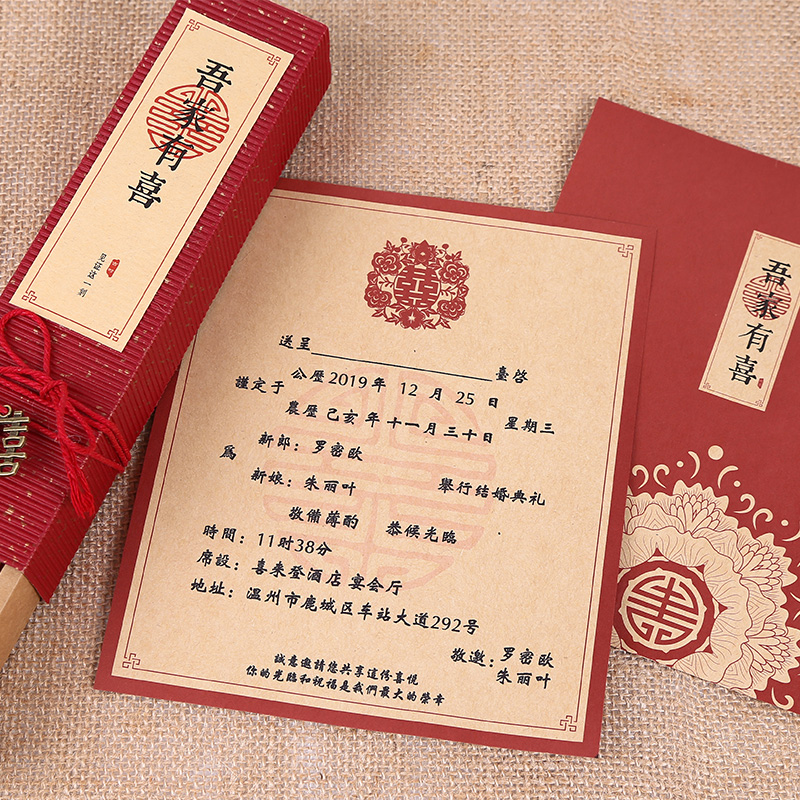 吾家有喜
见证这一刻
送呈 臺啓
謹定于
公歷2019年 12月 25日
農歷己亥年十一月三十日
星期三
爲
新郎：罗密欧
新娘：朱丽叶
舉行结婚典礼
敬備薄酌 恭候光臨
時間：11时38分
席設：喜来登酒店宴会厅
地址：温州市鹿城区车站大道292号
敬邀：罗密欧
朱丽叶
誠意邀請您共享這份喜悦
你的光臨和祝福是我們最大的榮幸
吾家有喜
囍